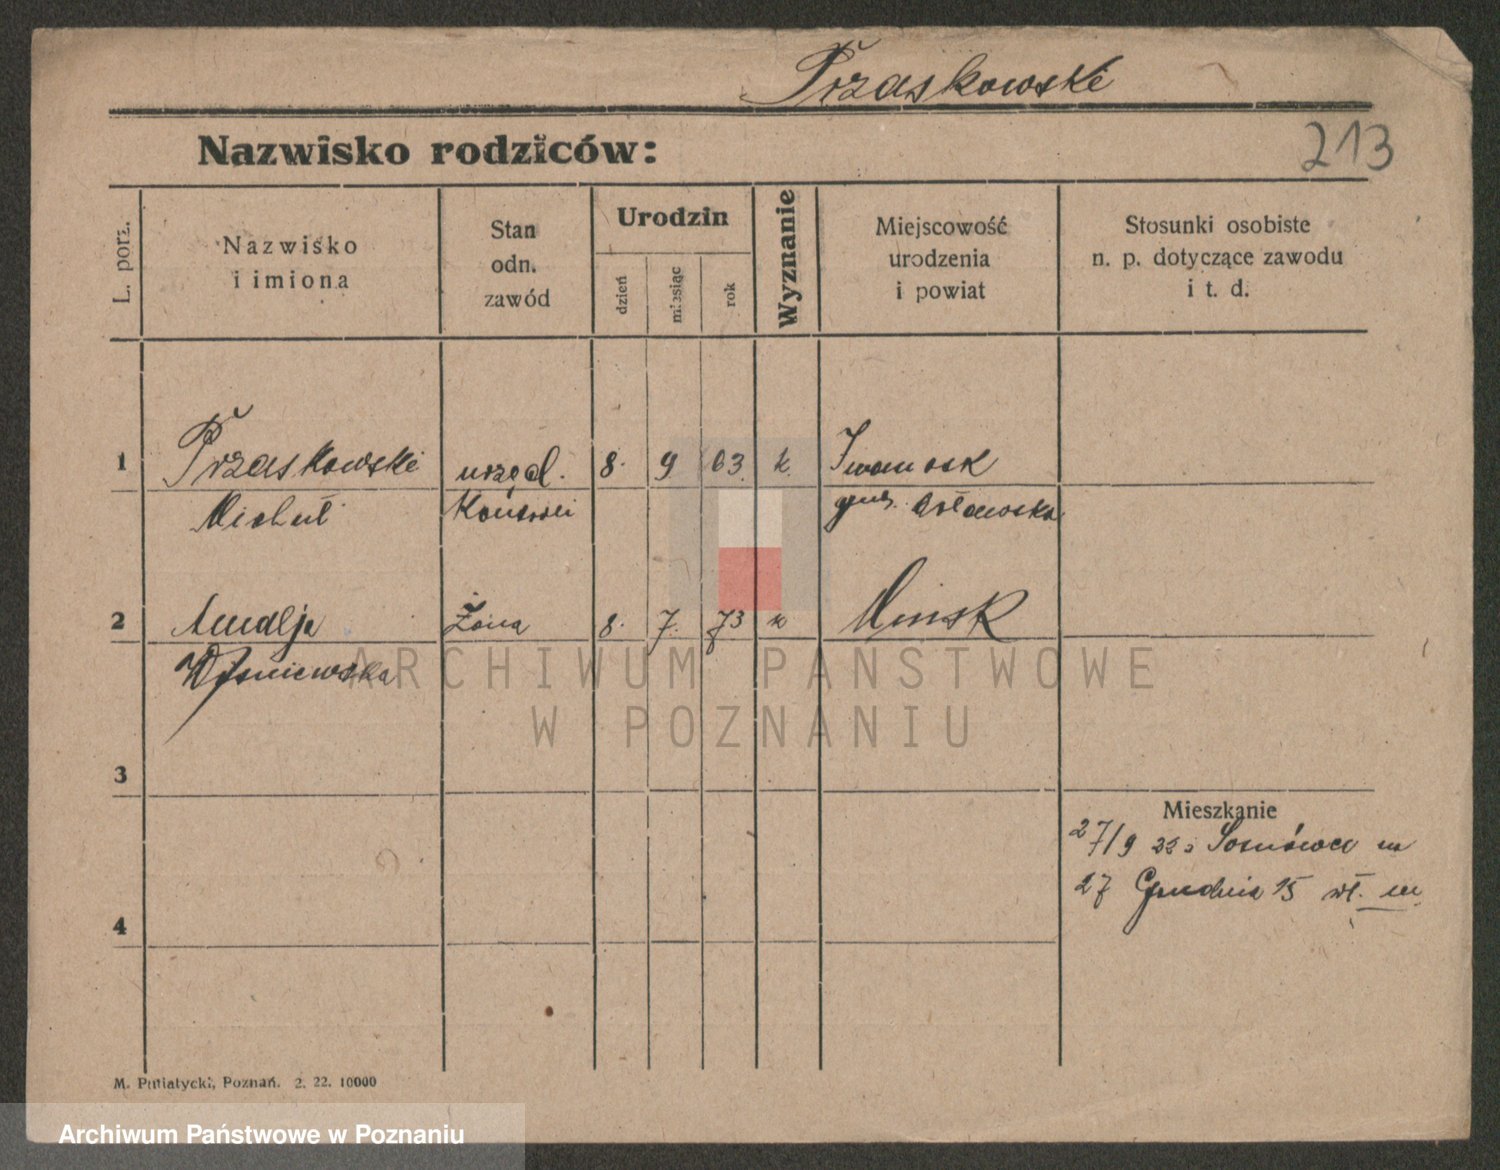 Przaskowski
Nazwisko rodziców:
213
L. porz.
Nazwisko
i imiona
Stan
odn.
zawód
Urodzin
dzień
miesiąc
rok
Wyznanie
Miejscowość
urodzenia
i powiat
Stosunki osobiste
n. p. dotyczące zawodu
i t. d.
1 Przaskowski urzęd. 8. 9 63. k.
Michał gub.
2 Amalja Żona 8. 7. 73 k Minsk
Wiśniewska
ARCHIWUM PAŃSTWOWE
W POZNANIU
3
Mieszkanie
27/9 22
27 Grudnia 15 wł. m
4
M. Putiatycki, Poznań. 2. 22. 10000
Archiwum Państwowe w Poznaniu